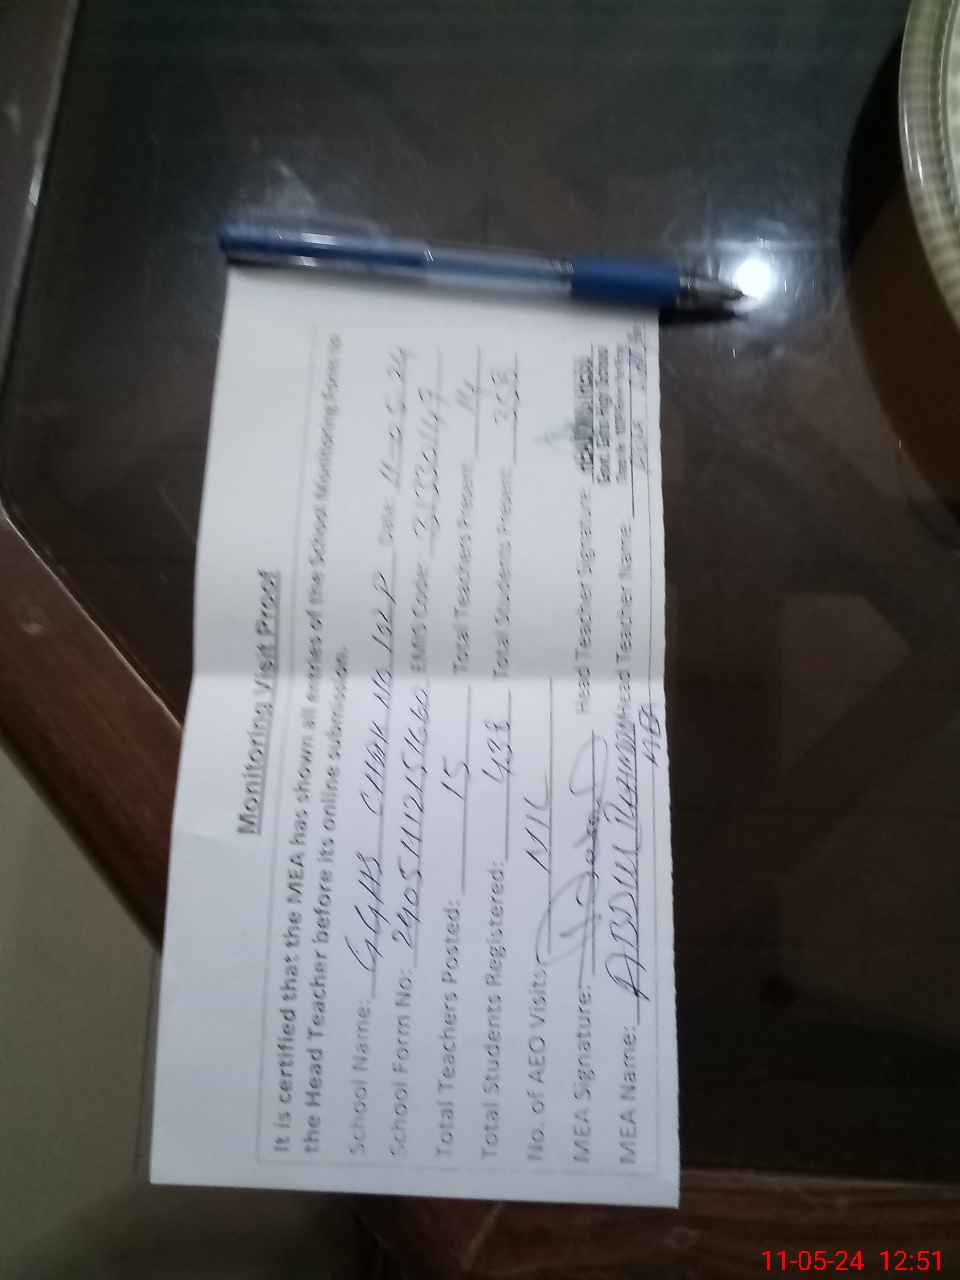 Monitoring Visit Proof
It is certified that the MEA has shown all entries of the School Monitoring Form to
the Head Teacher before its online submission.
School Name: GGHS CHAK NO 102P Date: 11-05-24
School Form No: EMIS Code:
Total Teachers Posted: 15 Total Teachers Present: 14
Total Students Registered: 438 Total Students Present: 358
No. of AEO Visits: NIL
MEA Signature: Head Teacher Signature:
Govt. Girls High School
MEA Name: ABDUL REHMAN Head Teacher Name:
MEA
11-05-24 12:51